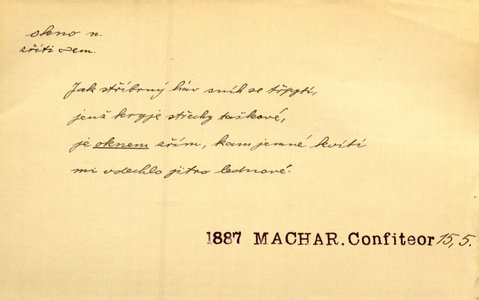 okno n.
zříti sem.
Jak stříbrný háv sníh se třpytí,
jenž kryje střechy taškové,
je oknem zřím, kam jemné kvítí
mi vdechlo jitro lednové.
1887 MACHAR. Confiteor 15, 5.